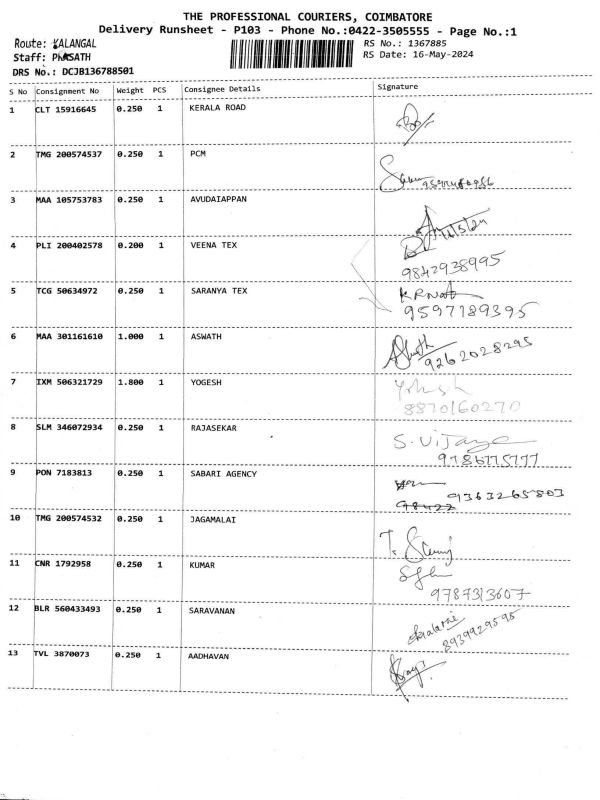 THE PROFESSIONAL COURIERS, COIMBATORE
Delivery Runsheet - P103 - Phone No.:0422-3505555 - Page No.:1
Route: KALANGAL
RS No.: 1367885
Staff: PRASATH
RS Date: 16-May-2024
DRS No.: DCJB136788501
S No Consignment No Weight PCS Consignee Details Signature
1 CLT 15916645 0.250 1 KERALA ROAD
2 TMG 200574537 0.250 1 PCM
3 MAA 105753783 0.250 1 AVUDAIAPPAN
4 PLI 200402578 0.200 1 VEENA TEX
9842938995
5 TCG 50634972 0.250 1 SARANYA TEX
9597189395
6 MAA 301161610 1.000 1 ASWATH
9262028295
7 IXM 506321729 1.800 1 YOGESH
8870160270
8 SLM 346072934 0.250 1 RAJASEKAR
S. Vijaya
9786775777
9 PON 7183813 0.250 1 SABARI AGENCY
9363265803
98422
10 TMG 200574532 0.250 1 JAGAMALAI
11 CNR 1792958 0.250 1 KUMAR
9787313607
12 BLR 560433493 0.250 1 SARAVANAN
8939929595
13 TVL 3870073 0.250 1 AADHAVAN